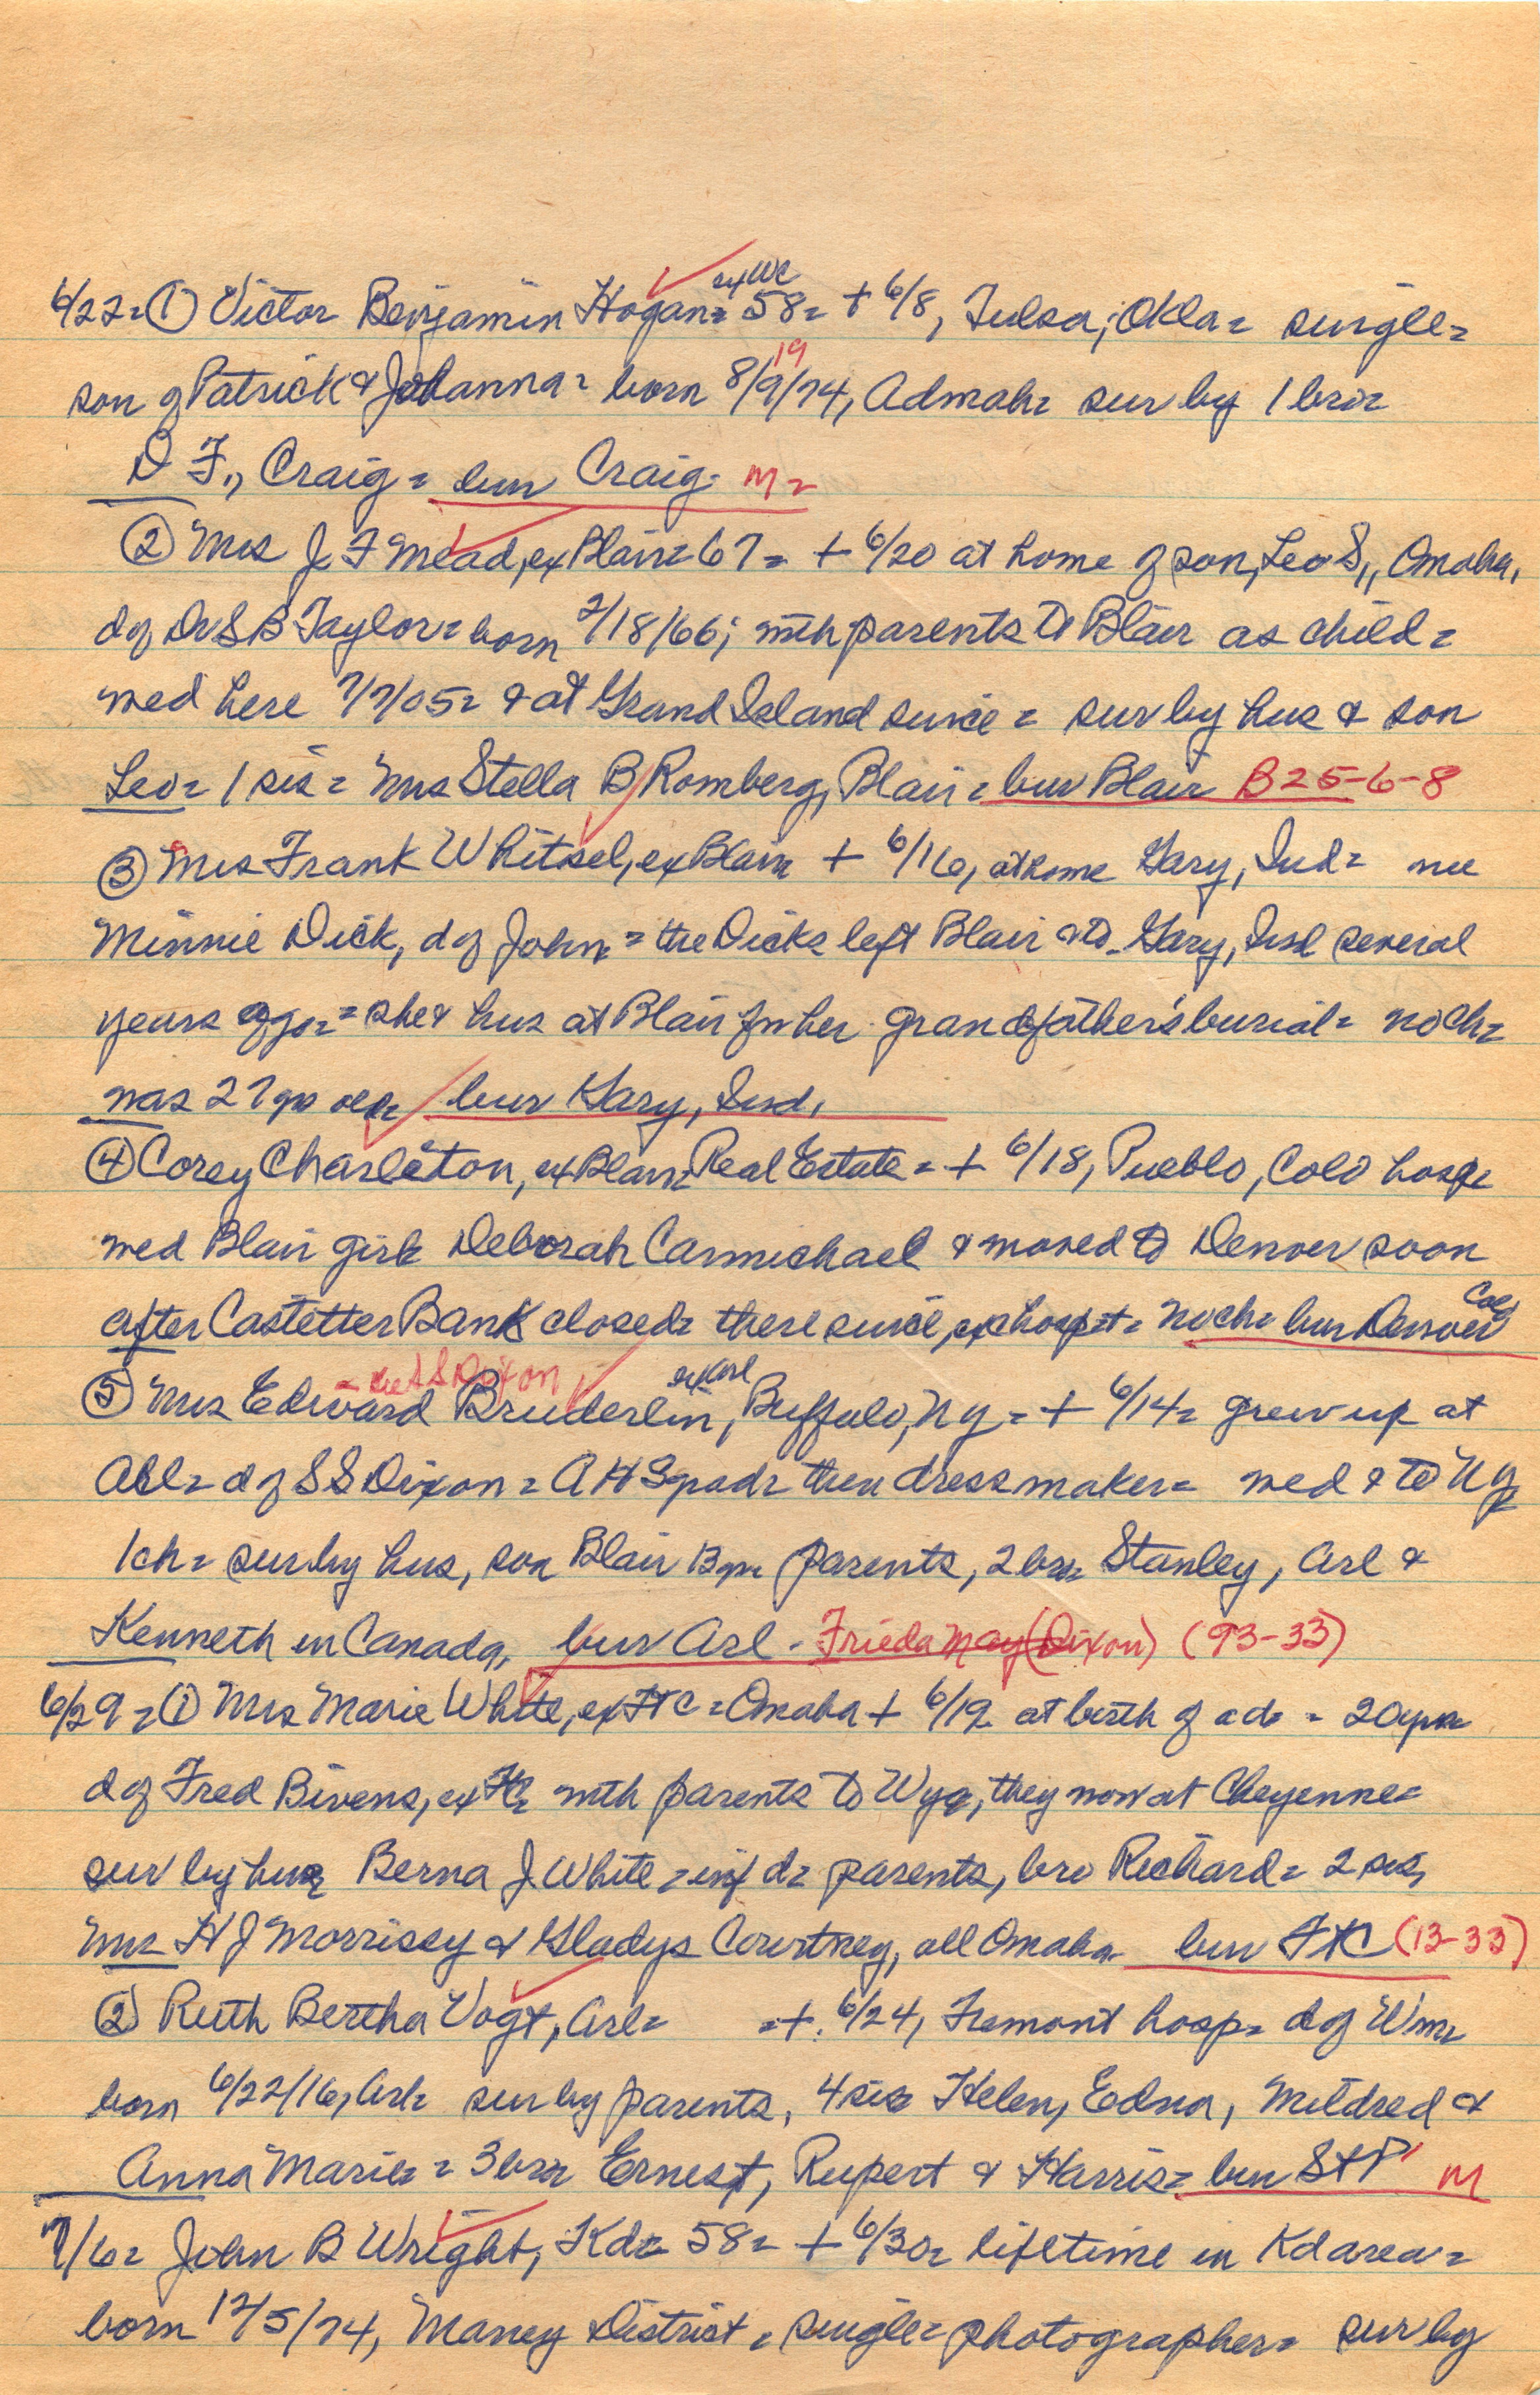 ex WC
6/22= ① Victor Benjamin Hogan= 58= + 6/8, Tulsa, Okla= single=
19
son of Patrick & Johanna= born 8/9/74, Admah= sur by 1 bro=
D F., Craig= bur Craig. M=
② Mrs J F Mead, ex Blair= 67= + 6/20 at home of son, Leo S., Omaha,
d of Dr S B Taylor= born 2/18/66; with parents to Blair as child=
wed here 7/7/05= & at Grand Island since= sur by hus & son
Leo= 1 sis= Mrs Stella B Romberg, Blair= bur Blair B25-6-8
③ Mrs Frank Whitsel, ex Blair= + 6/16, at home Gary, Ind= nee
Minnie Dick, d of John= the Dicks left Blair to Gary, Ind several
years ago= she & hus at Blair for her grandfather's burial= no ch=
was 27 yrs old= bur Gary, Ind.
④ Corey Charleton, ex Blair= Real Estate= + 6/18, Pueblo, Colo hosp=
wed Blair girl= Deborah Carmichael & moved to Denver soon
Colo
after Castetter Bank closed= there since, no ch= bur Denver
= d S Dixon
ex Arl
⑤ Mrs Edward Bruderlin, Buffalo, NY= + 6/14= grew up at
Arl= d of S S Dixon= A H S grad= then dressmaker= wed & to NY
1 ch= sur by hus, son Blair 13 yr= parents, 2 bro= Stanley, Arl &
Kenneth in Canada, bur Arl - Frieda May (Dixon) (93-33)
6/29= ① Mrs Marie White, ex FtC= Omaha + 6/19 at birth of a d= 20 yrs
d of Fred Bivens, ex FtC= with parents to Wyo, they now at Cheyenne=
sur by hus= Berna J White= inf d= parents, bro Richard= 2 sis,
Mrs H J Morrissey & Gladys Courtney, all Omaha= bur FtC (13-33)
② Ruth Bertha Vogt, Arl= =+ 6/24, Fremont hosp= d of Wm=
born 6/22/16, Arl= sur by parents, 4 sis= Helen, Edna, Mildred &
Anna Marie= = 3 bro= Ernest, Rupert & Harris= bur St P M
7/6= John B Wright, Kd= 58= + 6/30= lifetime in Kd area=
born 12/5/74, Maney District= single= photographer= sur by